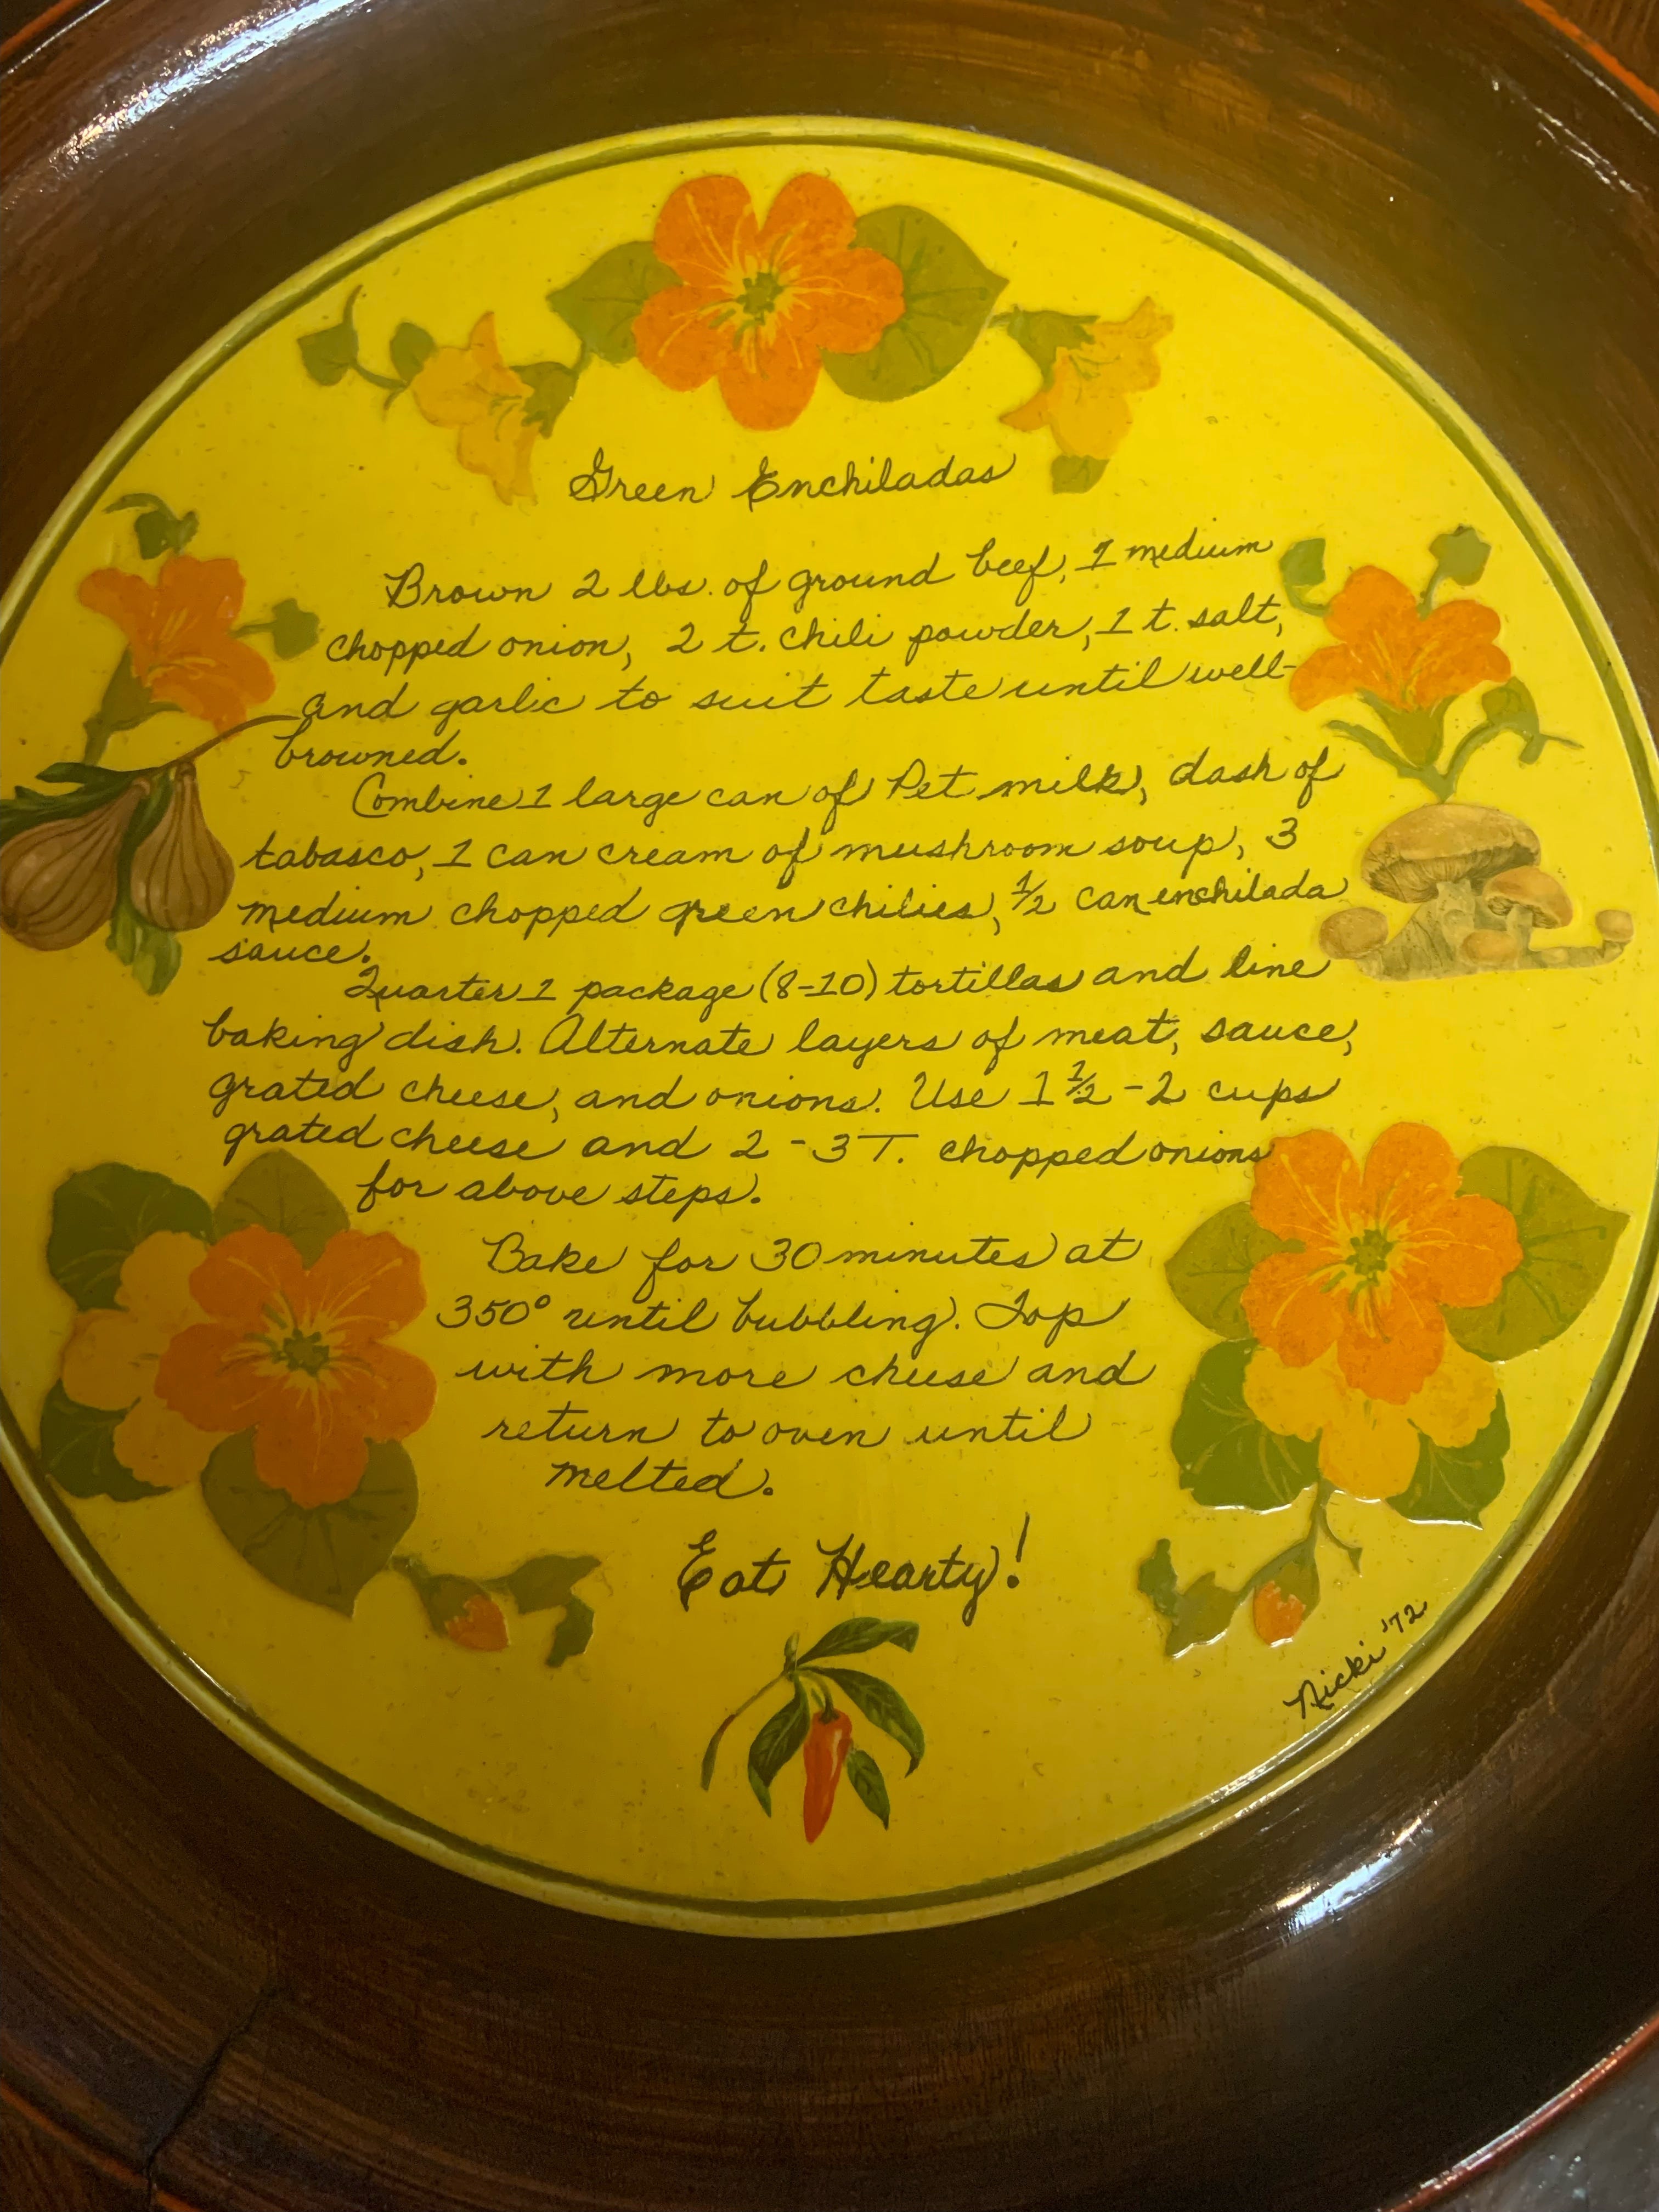 Green Enchiladas
Brown 2 lbs. of ground beef, 1 medium
chopped onion, 2 t. chili powder, 1 t. salt,
and garlic to suit taste until well-
browned.
Combine 1 large can of Pet milk, dash of
tabasco, 1 can cream of mushroom soup, 3
medium chopped green chilies, 1/2 can enchilada
sauce.
Quarter 1 package (8-10) tortillas and line
baking dish. Alternate layers of meat, sauce,
grated cheese, and onions. Use 1 1/2 - 2 cups
grated cheese and 2 - 3 T. chopped onions
for above steps.
Bake for 30 minutes at
350° until bubbling. Top
with more cheese and
return to oven until
melted.
Eat Hearty!
Nicki '72